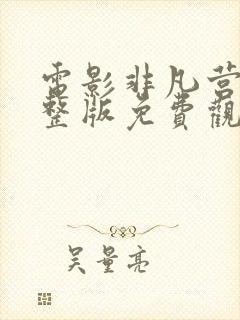 電影非凡营
整版免費觀
吴量亮